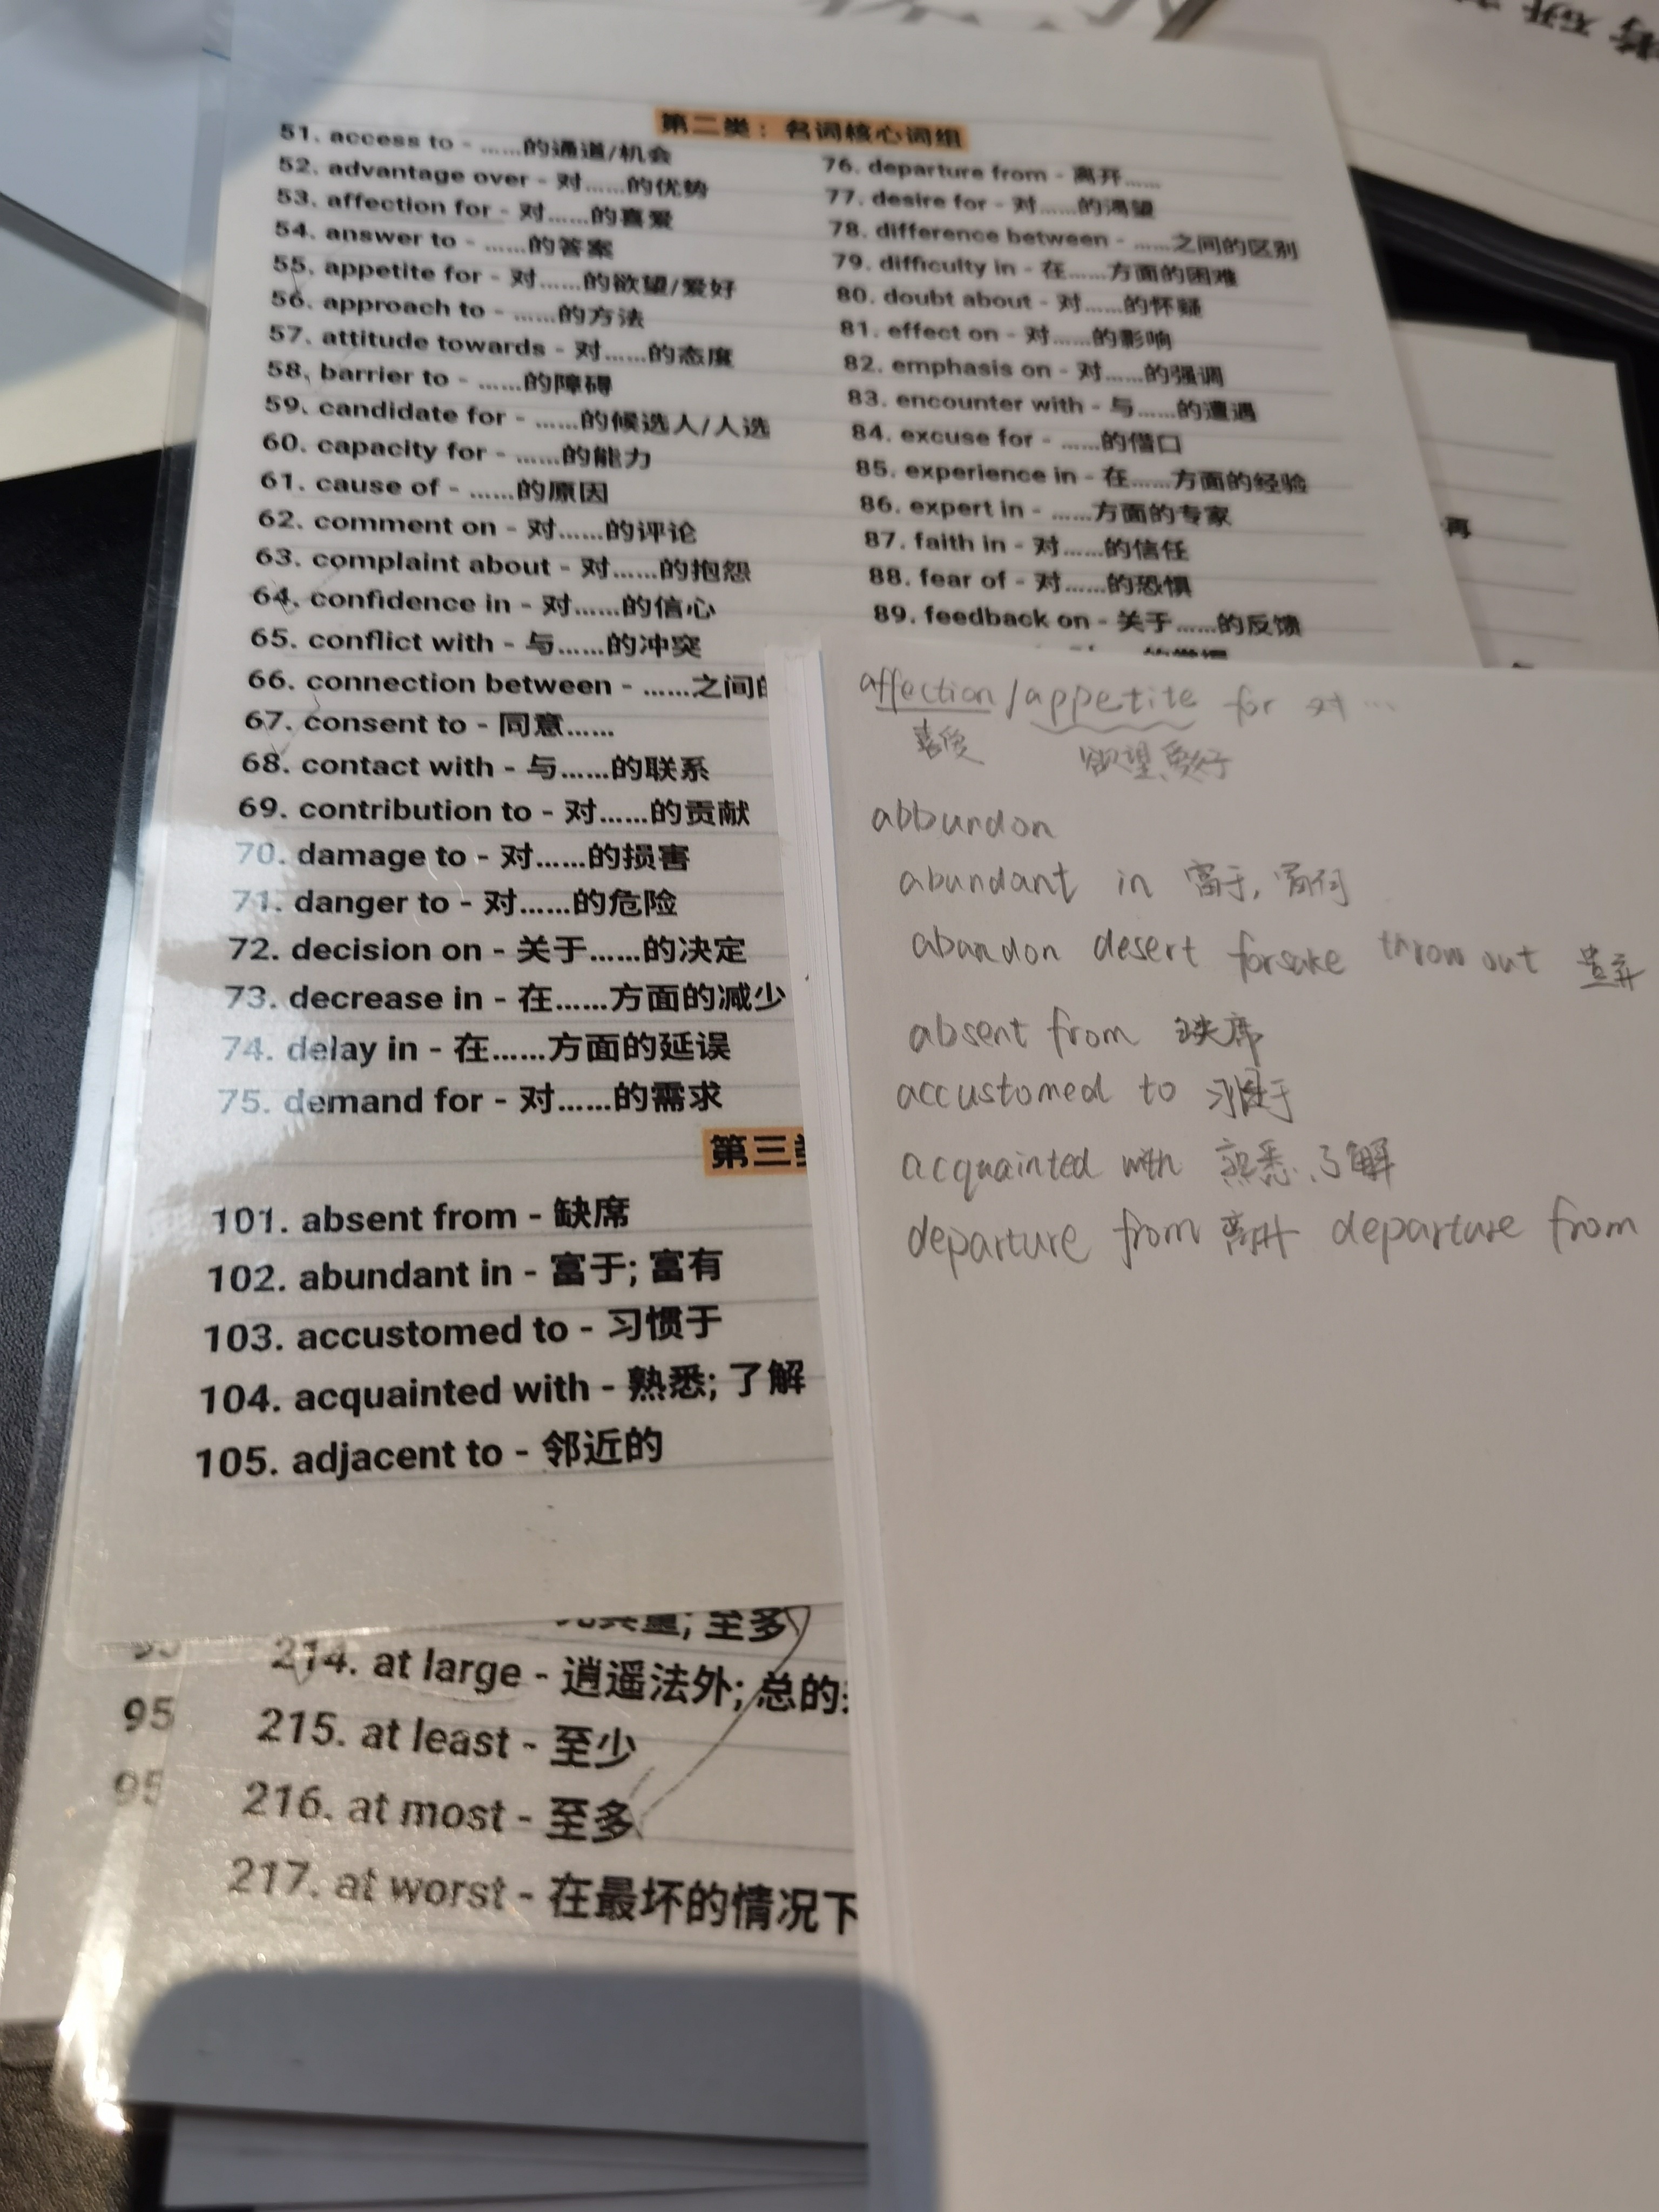 第二类：名词核心词组
51. access to - ......的通道/机会
52. advantage over - 对......的优势
53. affection for - 对......的喜爱
54. answer to - ......的答案
55. appetite for - 对......的欲望/爱好
56. approach to - ......的方法
57. attitude towards - 对......的态度
58. barrier to - ......的障碍
59. candidate for - ......的候选人/人选
60. capacity for - ......的能力
61. cause of - ......的原因
62. comment on - 对......的评论
63. complaint about - 对......的抱怨
64. confidence in - 对......的信心
65. conflict with - 与......的冲突
66. connection between - ......之间
67. consent to - 同意......
68. contact with - 与......的联系
69. contribution to - 对......的贡献
70. damage to - 对......的损害
71. danger to - 对......的危险
72. decision on - 关于......的决定
73. decrease in - 在......方面的减少
74. delay in - 在......方面的延误
75. demand for - 对......的需求
76. departure from - 离开......
77. desire for - 对......的渴望
78. difference between - ......之间的区别
79. difficulty in - 在......方面的困难
80. doubt about - 对......的怀疑
81. effect on - 对......的影响
82. emphasis on - 对......的强调
83. encounter with - 与......的遭遇
84. excuse for - ......的借口
85. experience in - 在......方面的经验
86. expert in - ......方面的专家
87. faith in - 对......的信任
88. fear of - 对......的恐惧
89. feedback on - 关于......的反馈
第三
101. absent from - 缺席
102. abundant in - 富于; 富有
103. accustomed to - 习惯于
104. acquainted with - 熟悉; 了解
105. adjacent to - 邻近的
至多
214. at large - 逍遥法外; 总的
215. at least - 至少
216. at most - 至多
217. at worst - 在最坏的情况下
95
95
再
affection / appetite for 对 ...
喜爱 欲望、爱好
abbundon
abundant in 富于,
abandon desert forsake throw out 遗弃
absent from 缺席
accustomed to 习惯于
acquainted with 熟悉、了解
departure from 离开 departure from